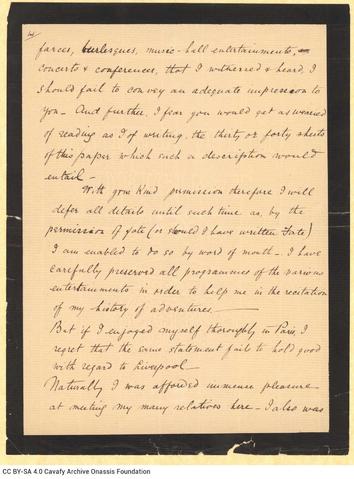 4/
farces, burlesques, music-hall entertainments,
concerts & conferences, that I witnessed & heard, I
should fail to convey an adequate impression to
you - And further, I fear you would get as wearied
of reading as I of writing, the thirty or forty sheets
of this paper which such a description would
entail -
With your kind permission therefore I will
defer all details until such time as, by the
permission of fate (or should I have written Fate)
I am enabled to do so by word of mouth - I have
carefully preserved all programmes of the various
entertainments in order to help me in the recitation
of my history of adventures. -
But if I enjoyed myself thoroughly in Paris, I
regret that the same statement fails to hold good
with regard to Liverpool -
Naturally I was afforded immense pleasure
at meeting my many relatives here - I also was
CC BY-SA 4.0 Cavafy Archive Onassis Foundation